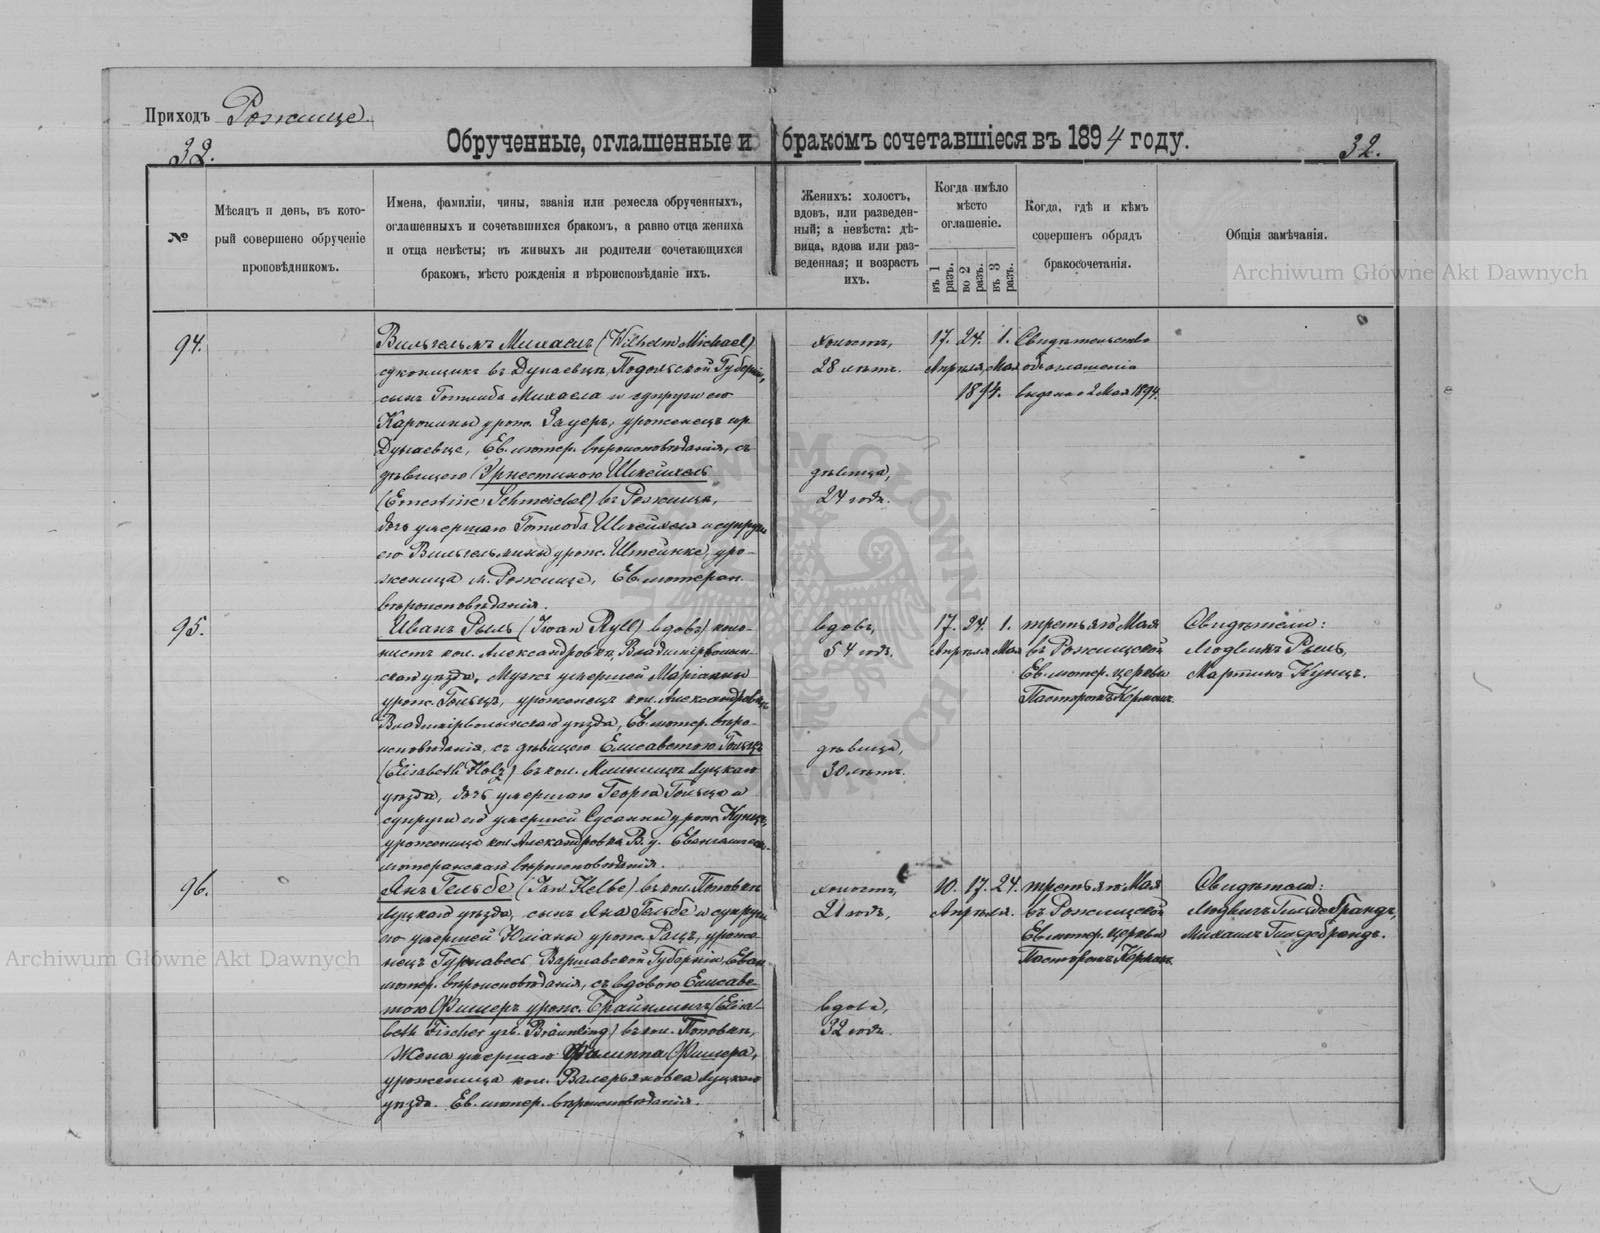 Приходъ Рожище.
32.
Обрученные, оглашенные и бракомъ сочетавшіеся въ 1894 году.
32.
№
Мѣсяцъ и день, въ кото-
рый совершено обрученіе
проповѣдникомъ.
Имена, фамиліи, чины, званія или ремесла обрученныхъ,
оглашенныхъ и сочетавшихся бракомъ, а равно отца жениха
и отца невѣсты; въ живыхъ ли родители сочетающихся
бракомъ, мѣсто рожденія и вѣроисповѣданіе ихъ.
Женихъ: холостъ,
вдовъ, или разведен-
ный; а невѣста: дѣ-
вица, вдова или раз-
веденная; и возрастъ
ихъ.
Когда имѣло
мѣсто
оглашеніе.
въ 1 разъ.
во 2 разъ.
въ 3 разъ.
Когда, гдѣ и кѣмъ
совершенъ обрядъ
бракосочетанія.
Общія замѣчанія.
Archiwum Główne Akt Dawnych
94.
Вильгельмъ Михаель (Wilhelm Michael)
суконщикъ въ Дунаевцѣ, Подольской Губерніи,
сынъ Готлиба Михаела и супруги его
Каролины урож. Зауеръ, уроженецъ
Дунаевце, Ев. лютер. вѣроисповѣданія, съ
дѣвицею Эрнестиною Шмейхель
(Ernestine Schmeichel) въ Рожище,
дочь умершаго Готлоба Шмейхеля и супруги
его Вильгельмины урож. Штейнке, уро-
женица м. Рожище, Ев. лютеран.
вѣроисповѣданія.
холостъ,
28 лѣтъ.
дѣвица,
24 года.
17. 24. 1.
Апрѣля, Мая
1894.
Свидѣтельство
объ оглашеніи
выдано 2 Мая 1894.
95.
Иванъ Рыль (Iwan Ryll) вдовъ, коло-
нистъ кол. Александровка, Владимірволын-
скаго уѣзда, Мужъ умершей Маріанны
урож. Гольцъ, уроженецъ кол. Александровка
Владимірволынскаго уѣзда, Ев. лютер. вѣро-
исповѣданія, съ дѣвицею Елисаветою Гольцъ
(Elisabeth Holz) въ кол. Луцкаго
уѣзда, дочь умершаго Георга Гольца и
супруги его умершей Сусанны урож. Кунцъ,
уроженица кол. Александровка В. у. Евангелическо-
лютеранскаго вѣроисповѣданія.
вдовъ,
54 года.
дѣвица,
30 лѣтъ.
17. 24. 1.
Апрѣля Мая
третьяго Мая
въ Рожищской
Ев. лютер. церкви
Пасторомъ Керманъ.
Свидѣтели:
Людвикъ Рыль,
Мартинъ Кунцъ.
96.
Янъ Гельбе (Jan Helbe) въ кол. Поповка
Луцкаго уѣзда, сынъ Яна Гельбе и супруги
его умершей Юліаны урож. Рацъ, уроже-
нецъ Варшавской Губерніи, Еван.
лютер. вѣроисповѣданія, съ вдовою Елисаве-
тою Фишеръ урож. Брайнлингъ (Elisa-
beth Fischer geb. Bräunling) въ кол. Поповка,
Жена умершаго Филиппа Фишера,
уроженица кол. Валерьяновка Луцкаго
уѣзда. Ев. лютер. вѣроисповѣданія.
холостъ,
21 годъ,
вдова,
32 года.
10. 17. 24.
Апрѣля.
третьяго Мая
въ Рожищской
Ев. лютер. церкви
Пасторомъ Керманъ.
Свидѣтели:
Людвигъ Гильдебрандъ,
Михаилъ Гильдебрандъ.
Archiwum Główne Akt Dawnych
ARCHIWUM GŁÓWNE AKT DAWNYCH